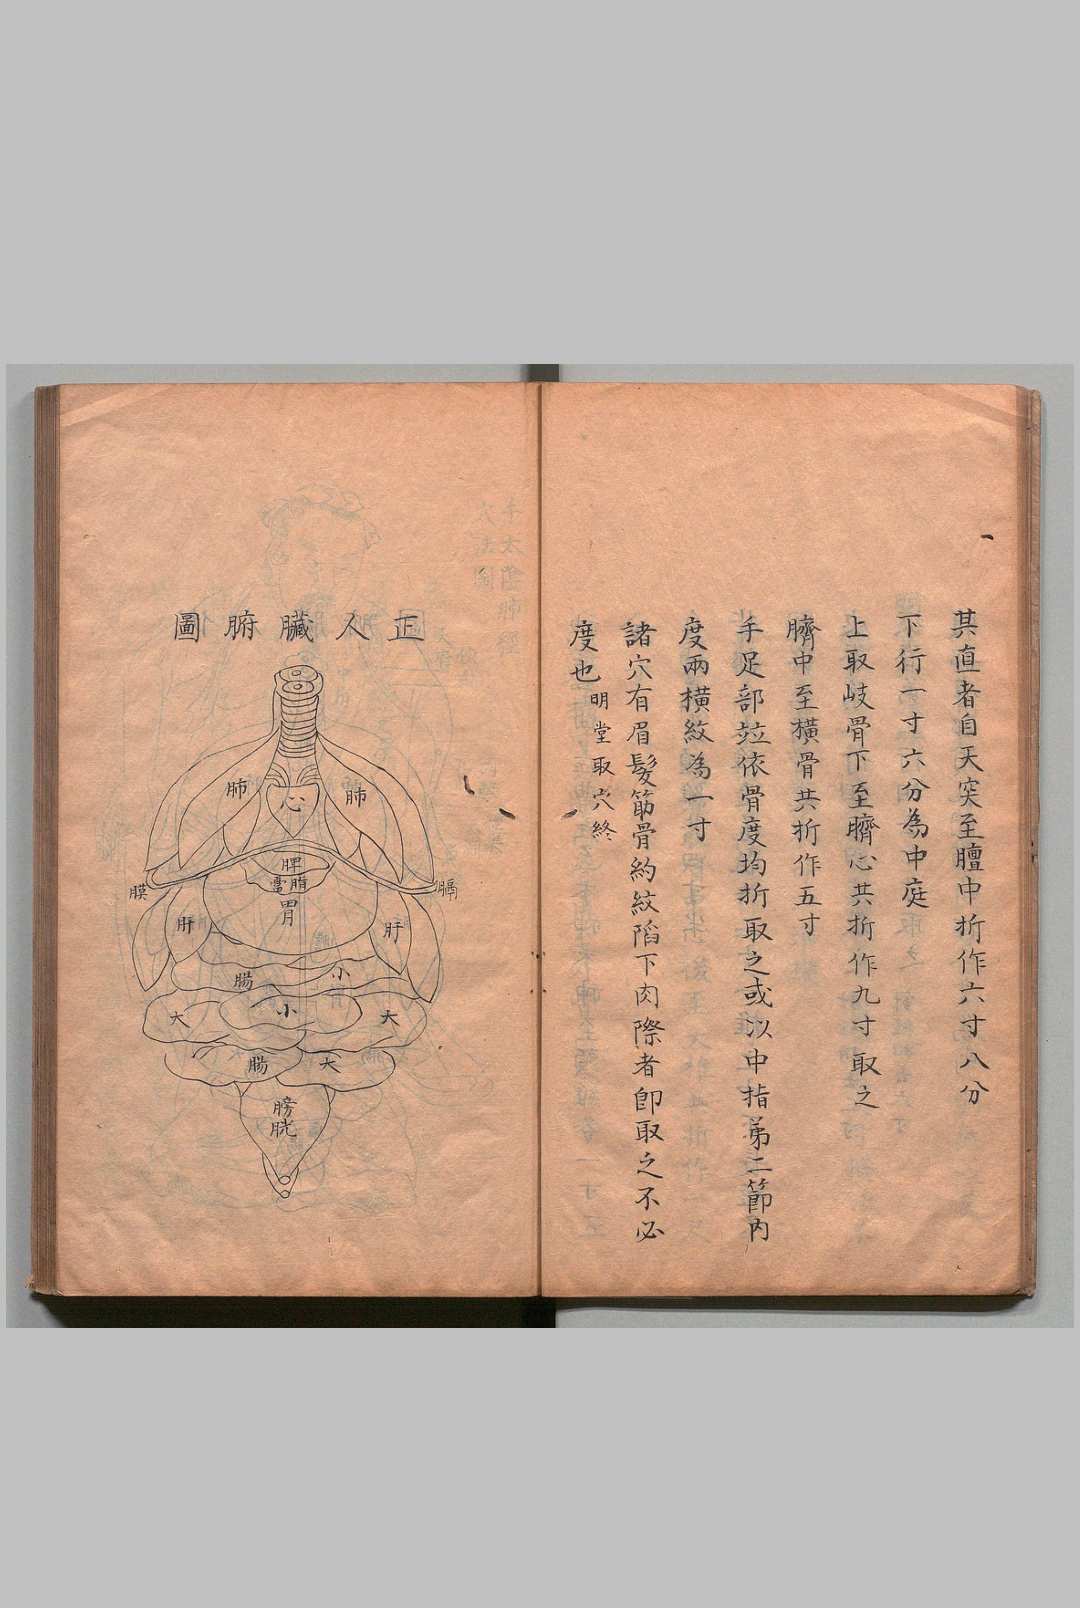 其直者自天突至膻中折作六寸八分
下行一寸六分為中庭
上取岐骨下至臍心共折作九寸取之
臍中至橫骨共折作五寸
手足部竝依骨度均折取之或以中指第二節內
度兩橫紋為一寸
諸穴有眉髮筋骨約紋陷下肉際者卽取之不必
度也
明堂取穴終
正人臟腑圖
肺
肺
心
脾
膜
膈
胃
肝
肝
小
腸
小
大
大
腸
大
膀胱